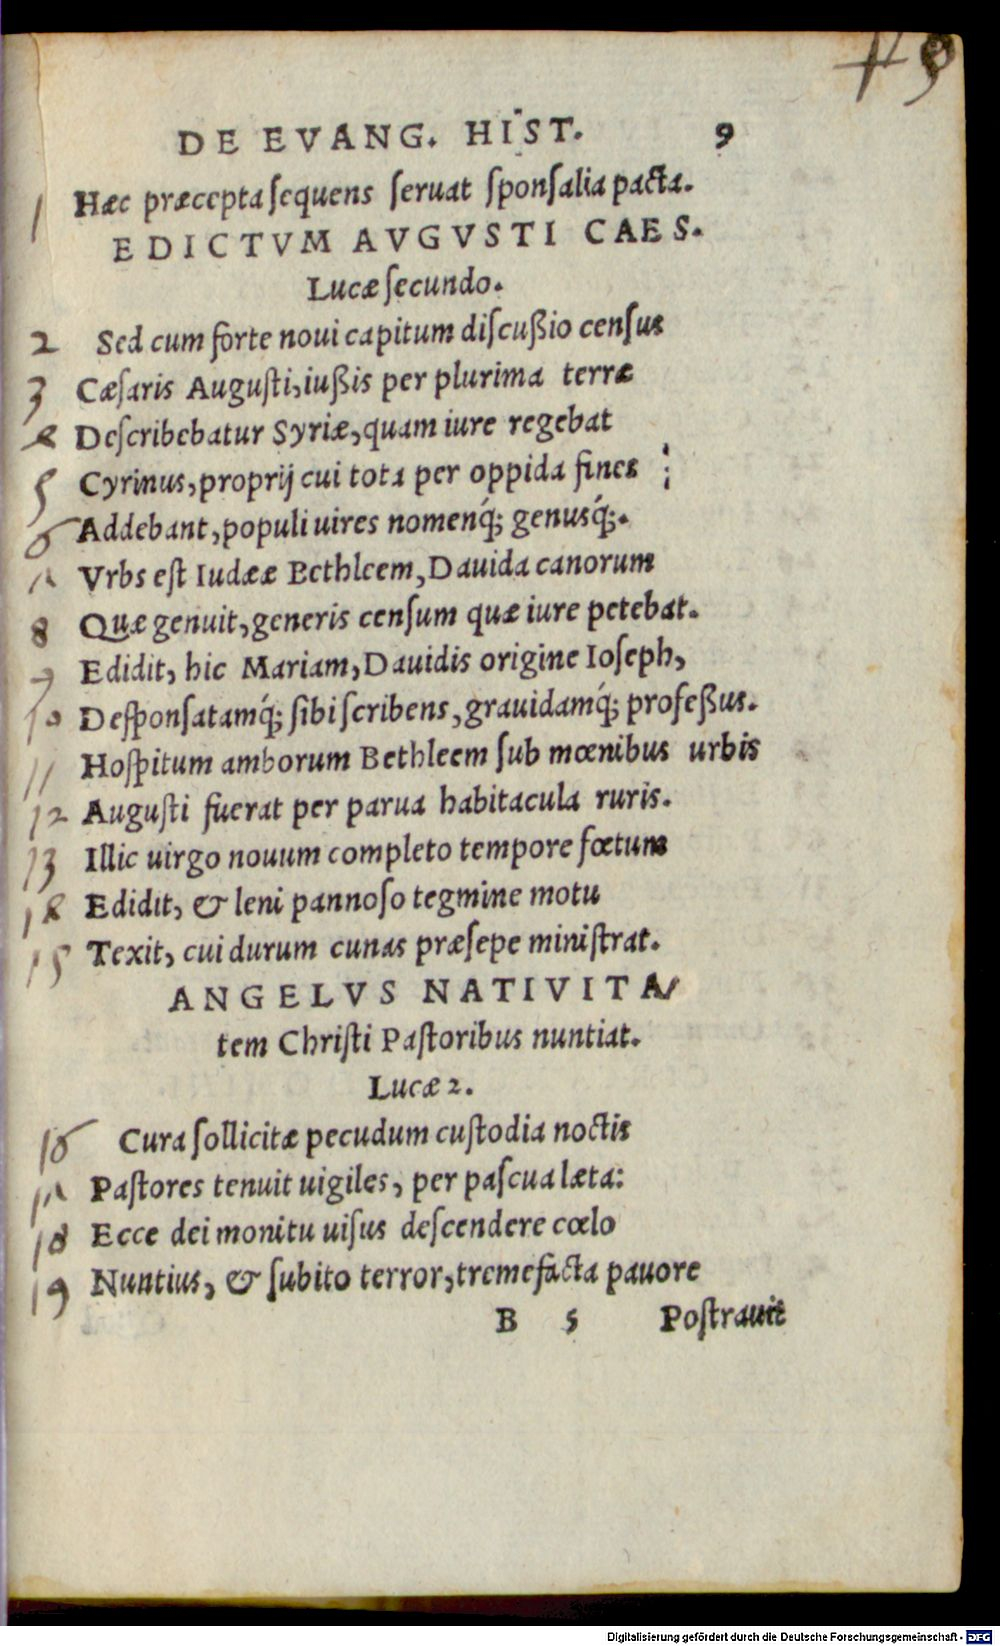 DE EVANG. HIST. 9
1 Hæc præcepta ſequens ſeruat ſponſalia pacta.
EDICTVM AVGVSTI CAES.
Lucæ ſecundo.
2 Sed cum forte noui capitum diſcußio cenſus
3 Cæſaris Auguſti, iußis per plurima terræ
4 Deſcribebatur Syriæ, quam iure regebat
5 Cyrinus, proprij cui tota per oppida fines
6 Addebant, populi uires nomenq́; genusq́;.
7 Vrbs eſt Iudææ Bethleem, Dauida canorum
8 Quæ genuit, generis cenſum quæ iure petebat.
9 Edidit, hic Mariam, Dauidis origine Ioſeph,
10 Deſponſatamq́; ſibi ſcribens, grauidamq́; profeßus.
11 Hoſpitum amborum Bethleem ſub mœnibus urbis
12 Auguſti fuerat per parua habitacula ruris.
13 Illic uirgo nouum completo tempore fœtum
14 Edidit, & leni pannoſo tegmine motu
15 Texit, cui durum cunas præſepe miniſtrat.
ANGELVS NATIVITA/
tem Chriſti Paſtoribus nuntiat.
Lucæ 2.
16 Cura ſollicitæ pecudum cuſtodia noctis
17 Paſtores tenuit uigiles, per paſcua læta:
18 Ecce dei monitu uiſus deſcendere cœlo
19 Nuntius, & ſubito terror, tremefacta pauore
B 5 Poſtrauit
Digitalisierung gefördert durch die Deutsche Forschungsgemeinschaft - DFG